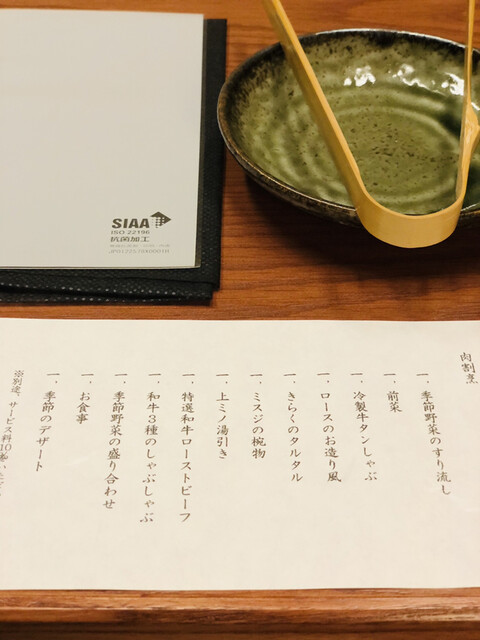 SIAA
ISO 22196
抗菌加工
肉割烹
一、季節野菜のすり流し
一、前菜
一、冷製牛タンしゃぶ
一、ロースのお造り風
一、きらくのタルタル
一、ミスジの椀物
一、上ミノ湯引き
一、特選和牛ローストビーフ
一、和牛3種のしゃぶしゃぶ
一、季節野菜の盛り合わせ
一、お食事
一、季節のデザート
※別途、サービス料10%